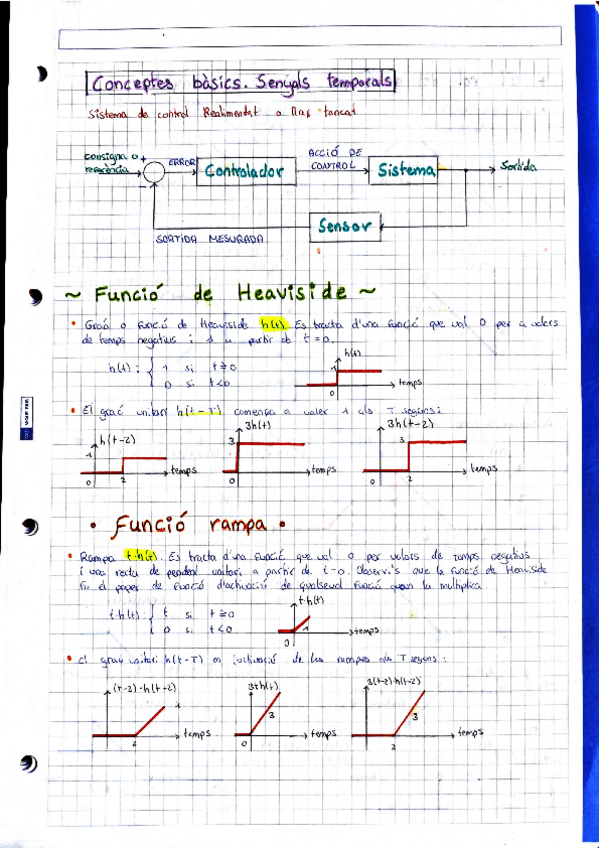 Conceptes bàsics. Senyals temporals
Sistema de control Realimentat o llaç tancat
consigna o
referència
+
-
ERROR
Controlador
ACCIÓ DE
CONTROL
Sistema
Sortida
Sensor
SORTIDA MESURADA
~ Funció de Heaviside ~
• Graó o funció de Heaviside h(t). Es tracta d'una funció que val 0 per a valors
de temps negatius i 1 a partir de t=0.
h(t): { 1 si t≥0
0 si t<0
h(t)
1
0
temps
• El graó unitari h(t-T) comença a valer 1 als T segons:
h(t-2)
1
0
2
temps
3h(t)
3
0
temps
3h(t-2)
3
0
2
temps
• Funció rampa •
• Rampa t·h(t). Es tracta d'una funció que val 0 per valors de temps negatius
i una recta de pendent unitari a partir de t=0. Observi's que la funció de Heaviside
fa el paper de funció d'activació de qualsevol funció quan la multiplica.
t·h(t): { t si t≥0
0 si t<0
t·h(t)
1
0
temps
• El graó unitari h(t-T) de les rampes als T segons:
(t-2)·h(t-2)
1
2
temps
3th(t)
3
0
temps
3(t-2)·h(t-2)
3
2
temps